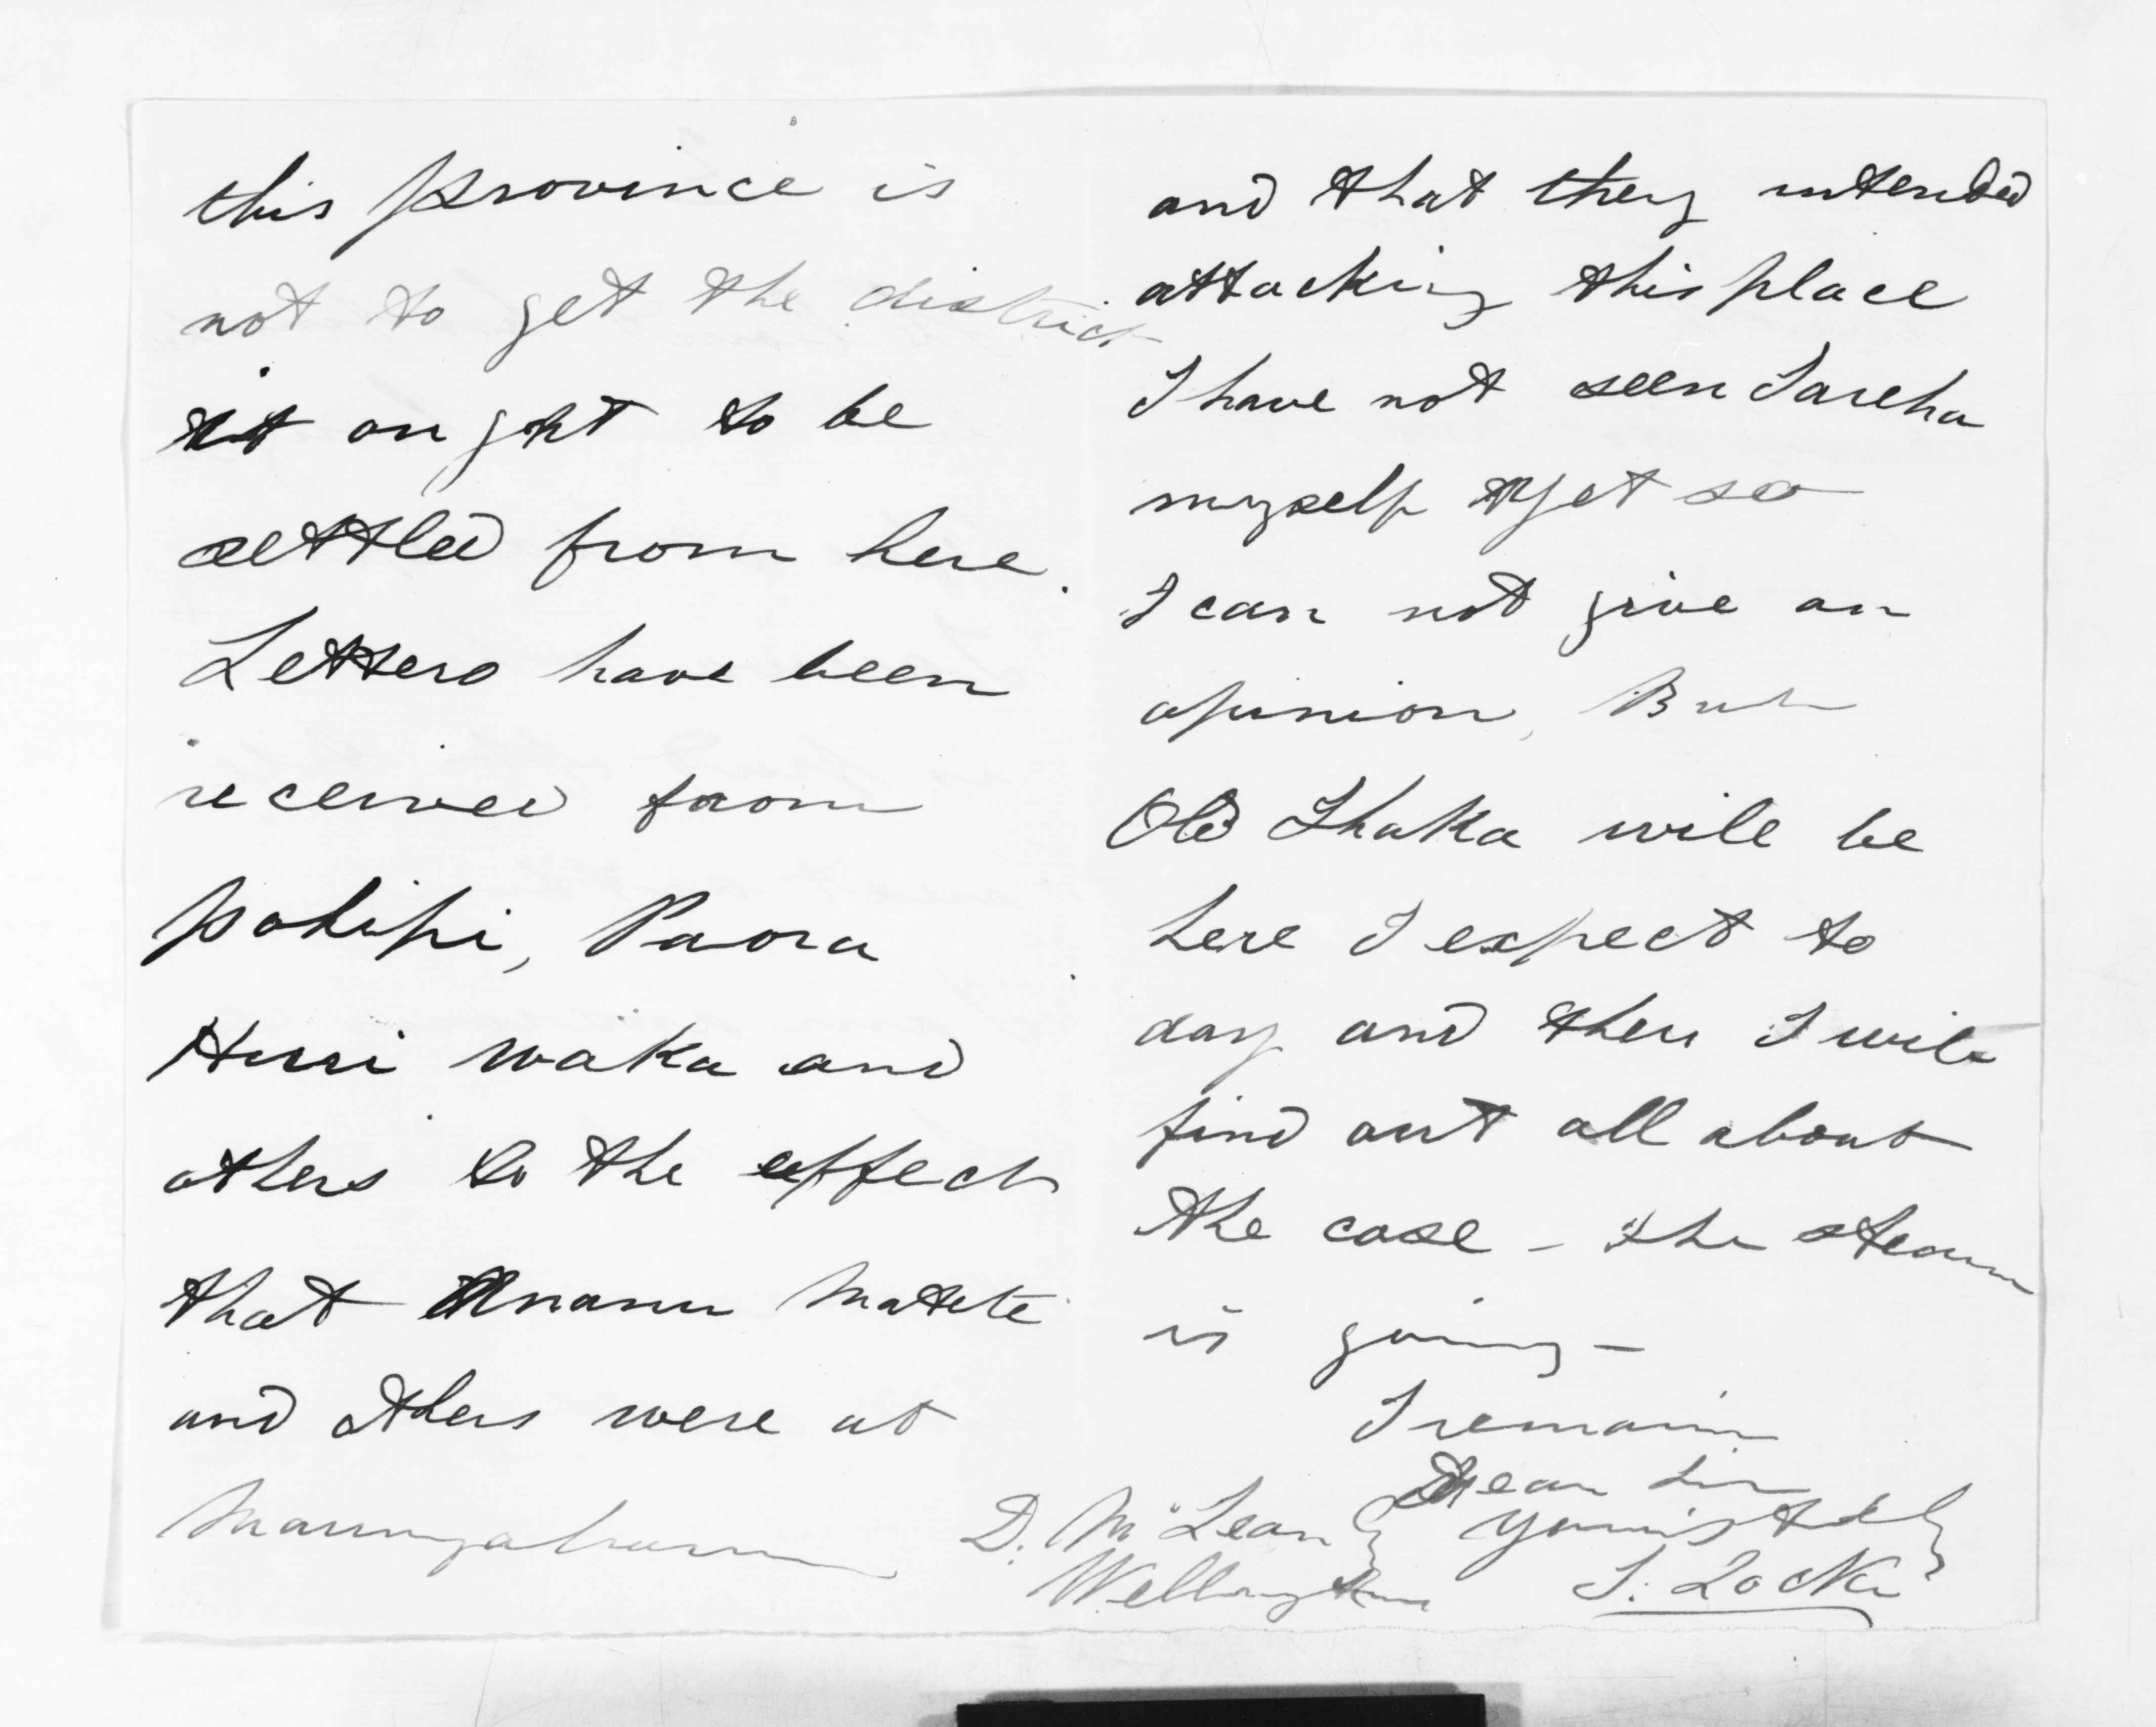 this province is
not to get the district
it ought to be
settled from here.
Letters have been
received from
Pohipi, Paora
Huri waka and
others to the effect
that Anaru Matete
and others were at
Maungaharuru
and that they intended
attacking this place
I have not seen Tareha
myself yet so
I can not give an
opinion, But
Old Ihaka will be
here I expect to
day and then I will
find out all about
the case - the steam
is going -
I remain
Dear Sir
Yours
D. McLean
Wellington
S. Locke